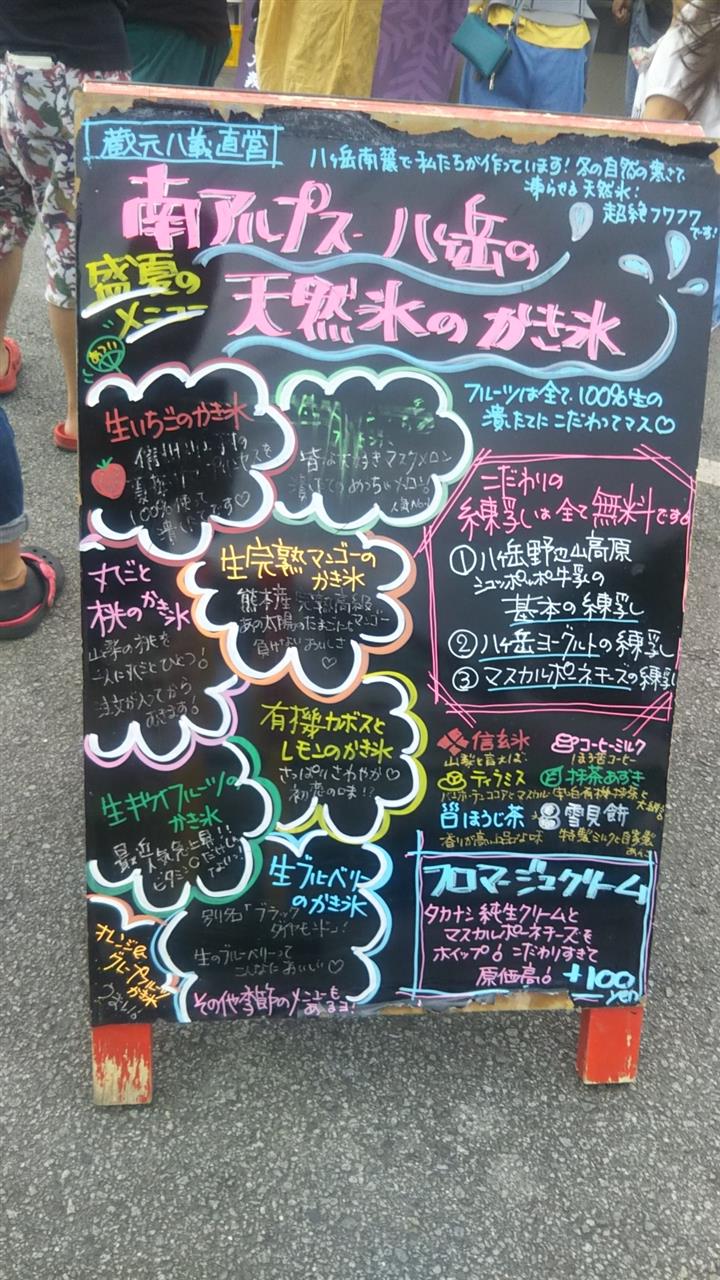 蔵元八義直営
八ヶ岳南麓で私たちが作っています!冬の自然の寒さで
凍らせる天然氷!
超絶フワフワです!
南アルプス 八ヶ岳の
天然氷のかき氷
盛夏の
メニュー
あつい
フルーツは全て100%生の
潰したてにこだわってマス♡
生いちごのかき氷
100%使って
潰したてです♡
皆な大好きマスクメロン
こだわりの
練乳は全て無料です
①八ヶ岳野辺山高原
シュッポッポ牛乳の
基本の練乳
②八ヶ岳ヨーグルトの練乳
③マスカルポーネチーズの練乳
丸ごと
桃のかき氷
山梨の桃を
一人に丸ごとひとつ!
注文が入ってから
生完熟マンゴーの
かき氷
熊本産 完熟高級
あの太陽のたまごにも
マンゴー
負けないおいしさ
♡
有機カボスと
レモンのかき氷
さっぱりさわやか♡
初恋の味!?
信玄氷
山梨と言えば
コーヒーミルク
ほろ苦コーヒー
ティラミス
抹茶あずき
ほうじ茶
香りが高い上品な味
雪見餅
特製ミルクと自家製
あんこ
生キウイフルーツの
かき氷
最近 人気急上昇!!
ビタミンCだけじゃない?!
生ブルーベリー
のかき氷
別名「ブラック
ダイヤモンド」!
生のブルーベリーって
こんなにおいしい♡
オレンジ&
グレープフルーツ
かき氷
その他季節のメニューも
あるヨ!
フロマージュクリーム
タカナシ純生クリームと
マスカルポーネチーズを
ホイップ!こだわりすぎて
原価高!
+100
yen